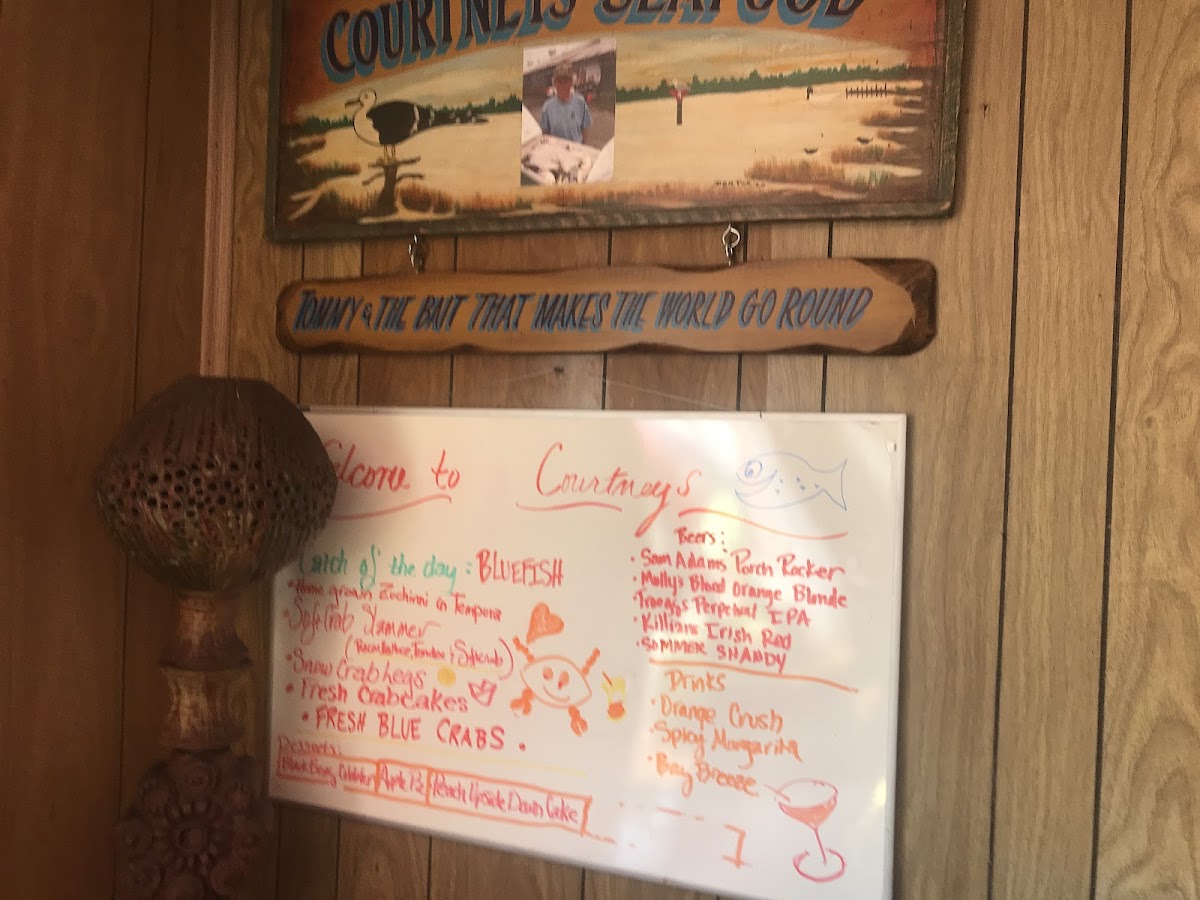 COURTNEYS SEAFOOD
TOMMY & THE BAIT THAT MAKES THE WORLD GO ROUND
Welcome to Courtneys
Catch of the day: BLUEFISH
• Home grown Zuchinni in Tempora
• Soft Crab Slammer
• Snow Crab Legs
• Fresh Crabcakes
• FRESH BLUE CRABS •
Desserts:
BlackBerry Cobbler Apple Pie Peach Upside Down Cake
Beers:
• Sam Adams Porch Rocker
• Molly's Blood Orange Blonde
• Troegs Perpetual IPA
• Killians Irish Red
• SUMMER SHANDY
Drinks
• Orange Crush
• Spicy Margarita
• Bay Breeze